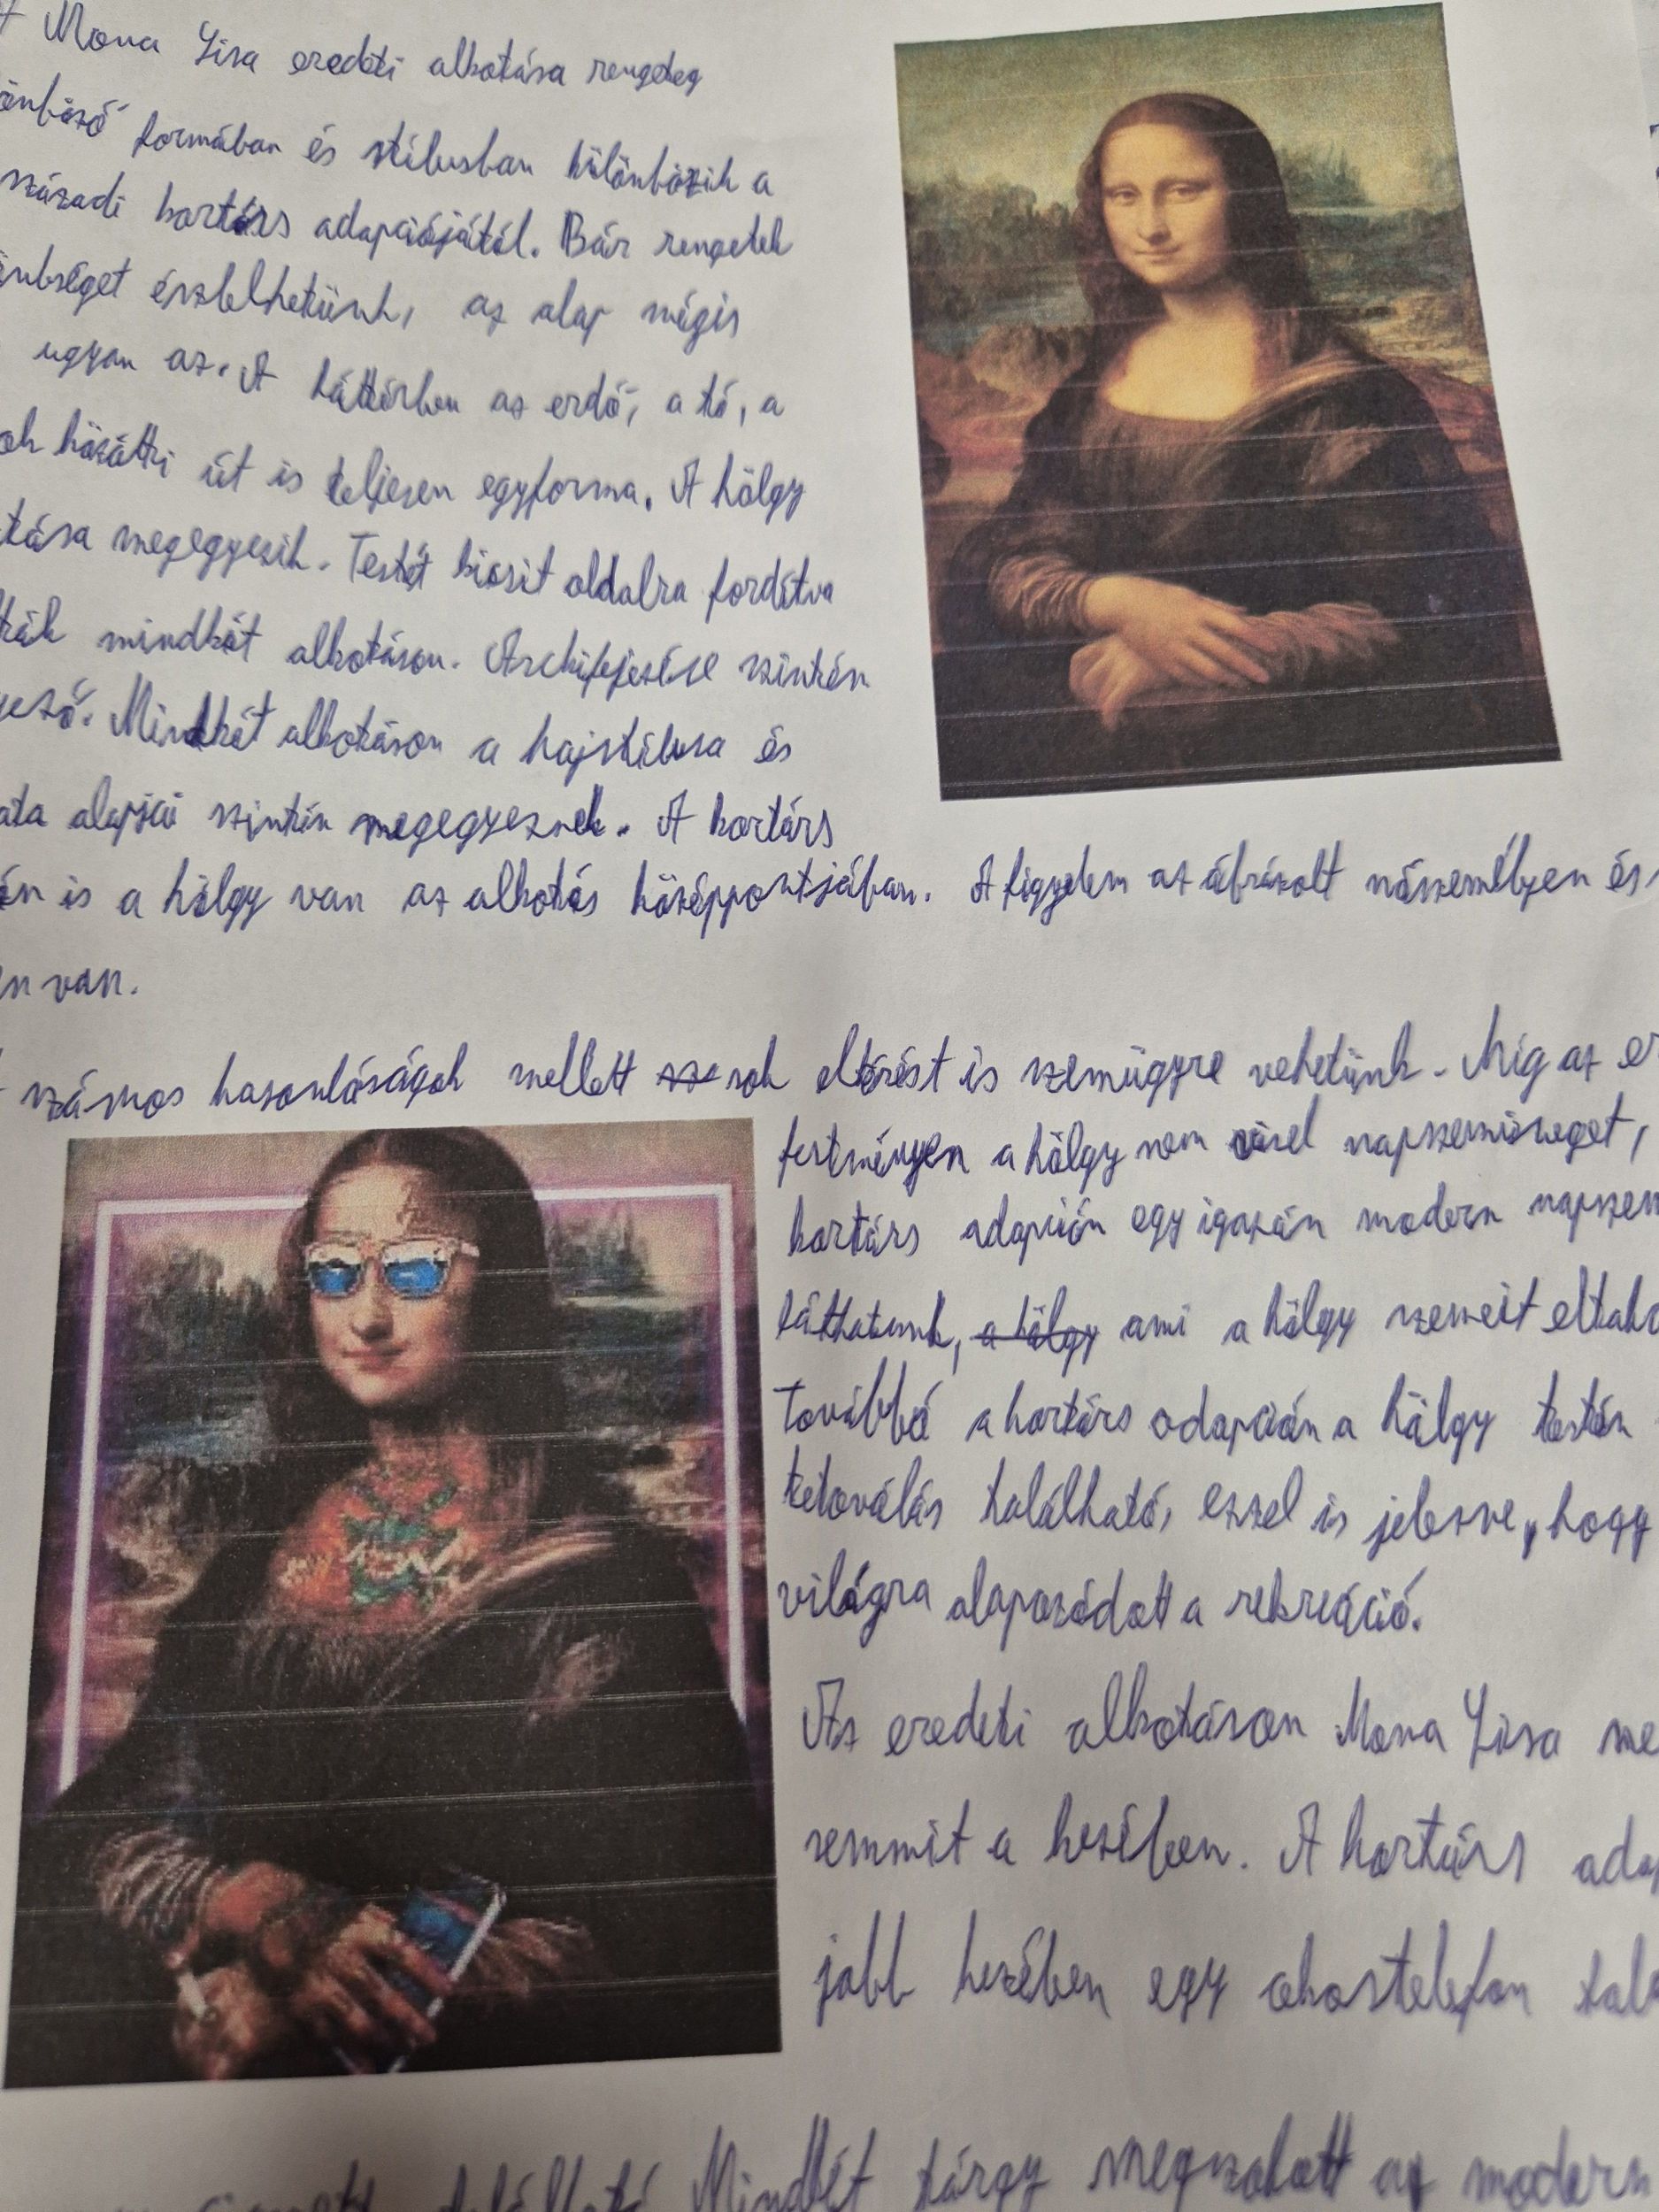 Mona Lisa eredeti alkotása rengeteg
önböző formában és stílusban különbözik a
századi kortárs adapciójától. Bár rengetek
önbséget észlelhetünk, az alap mégis
ugyan az. A háttérben az erdő, a tó, a
ok közötti út is teljesen egyforma. A hölgy
tása megegyezik. Testét kicsit oldalra fordítva
ták mindkét alkotáson. Arckifejezése szintén
gező. Mindkét alkotáson a hajstílusa és
ata alapjai szintén megegyeznek. A kortárs
én is a hölgy van az alkotás középpontjában. A figyelem az ábrázolt nőszemélyen és
en van.
számos hasonlóságok mellett sok eltérést is szemügyre vehetünk. Míg az er
festményen a hölgy nem visel napszemüveget,
kortárs adapción egy igazán modern napszem
láthatunk, a hölgy ami a hölgy szemeit eltaka
Továbbá a kortárs adapción a hölgy testén
tetoválás található, ezzel is jelezve, hogy
világra alapozódott a rekreáció.
Az eredeti alkotáson Mona Lisa me
semmit a kezében. A kortárs adap
jobb kezében egy okostelefon talá
található Mindkét tárgy megszokott az modern